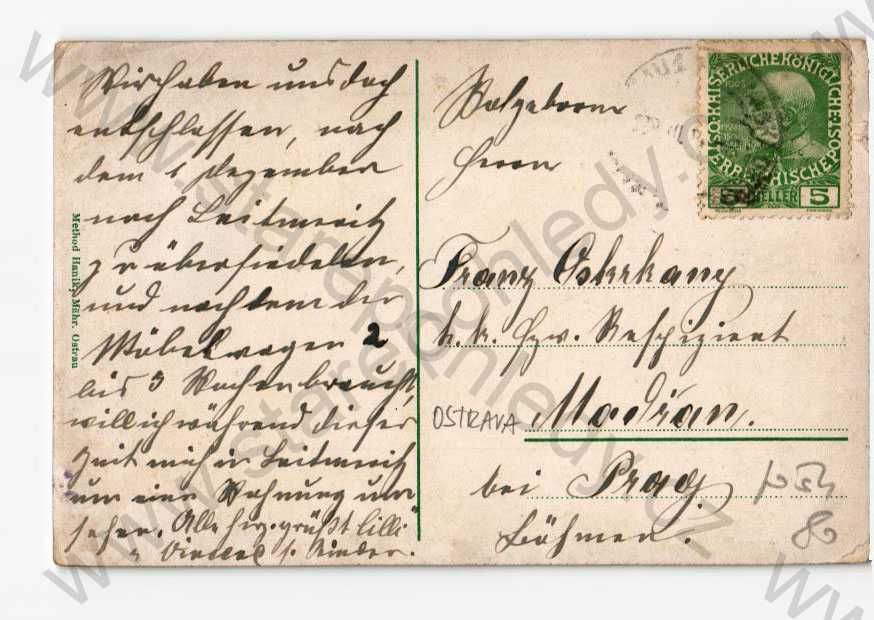 Wir haben uns doch
entschlossen, nach
dem 1 Dezember
nach Leitmeritz
zu übersiedeln,
und nachdem der
Möbelwagen 2
bis 3 Wochen braucht,
will ich während dieser
Zeit mich in Leitmeritz
um eine Wohnung um
sehen. Alle grüßt Lilli
Method Hanik, Mähr. Ostrau
Wolgeboren
Herrn
Franz
k. k. Respizient
OSTRAVA Modřan.
bei Prag
Böhmen.
80
KAISERLICHE KÖNIGLICHE ÖSTERREICHISCHE POST
5 HELLER 5
www.starepohledy.cz